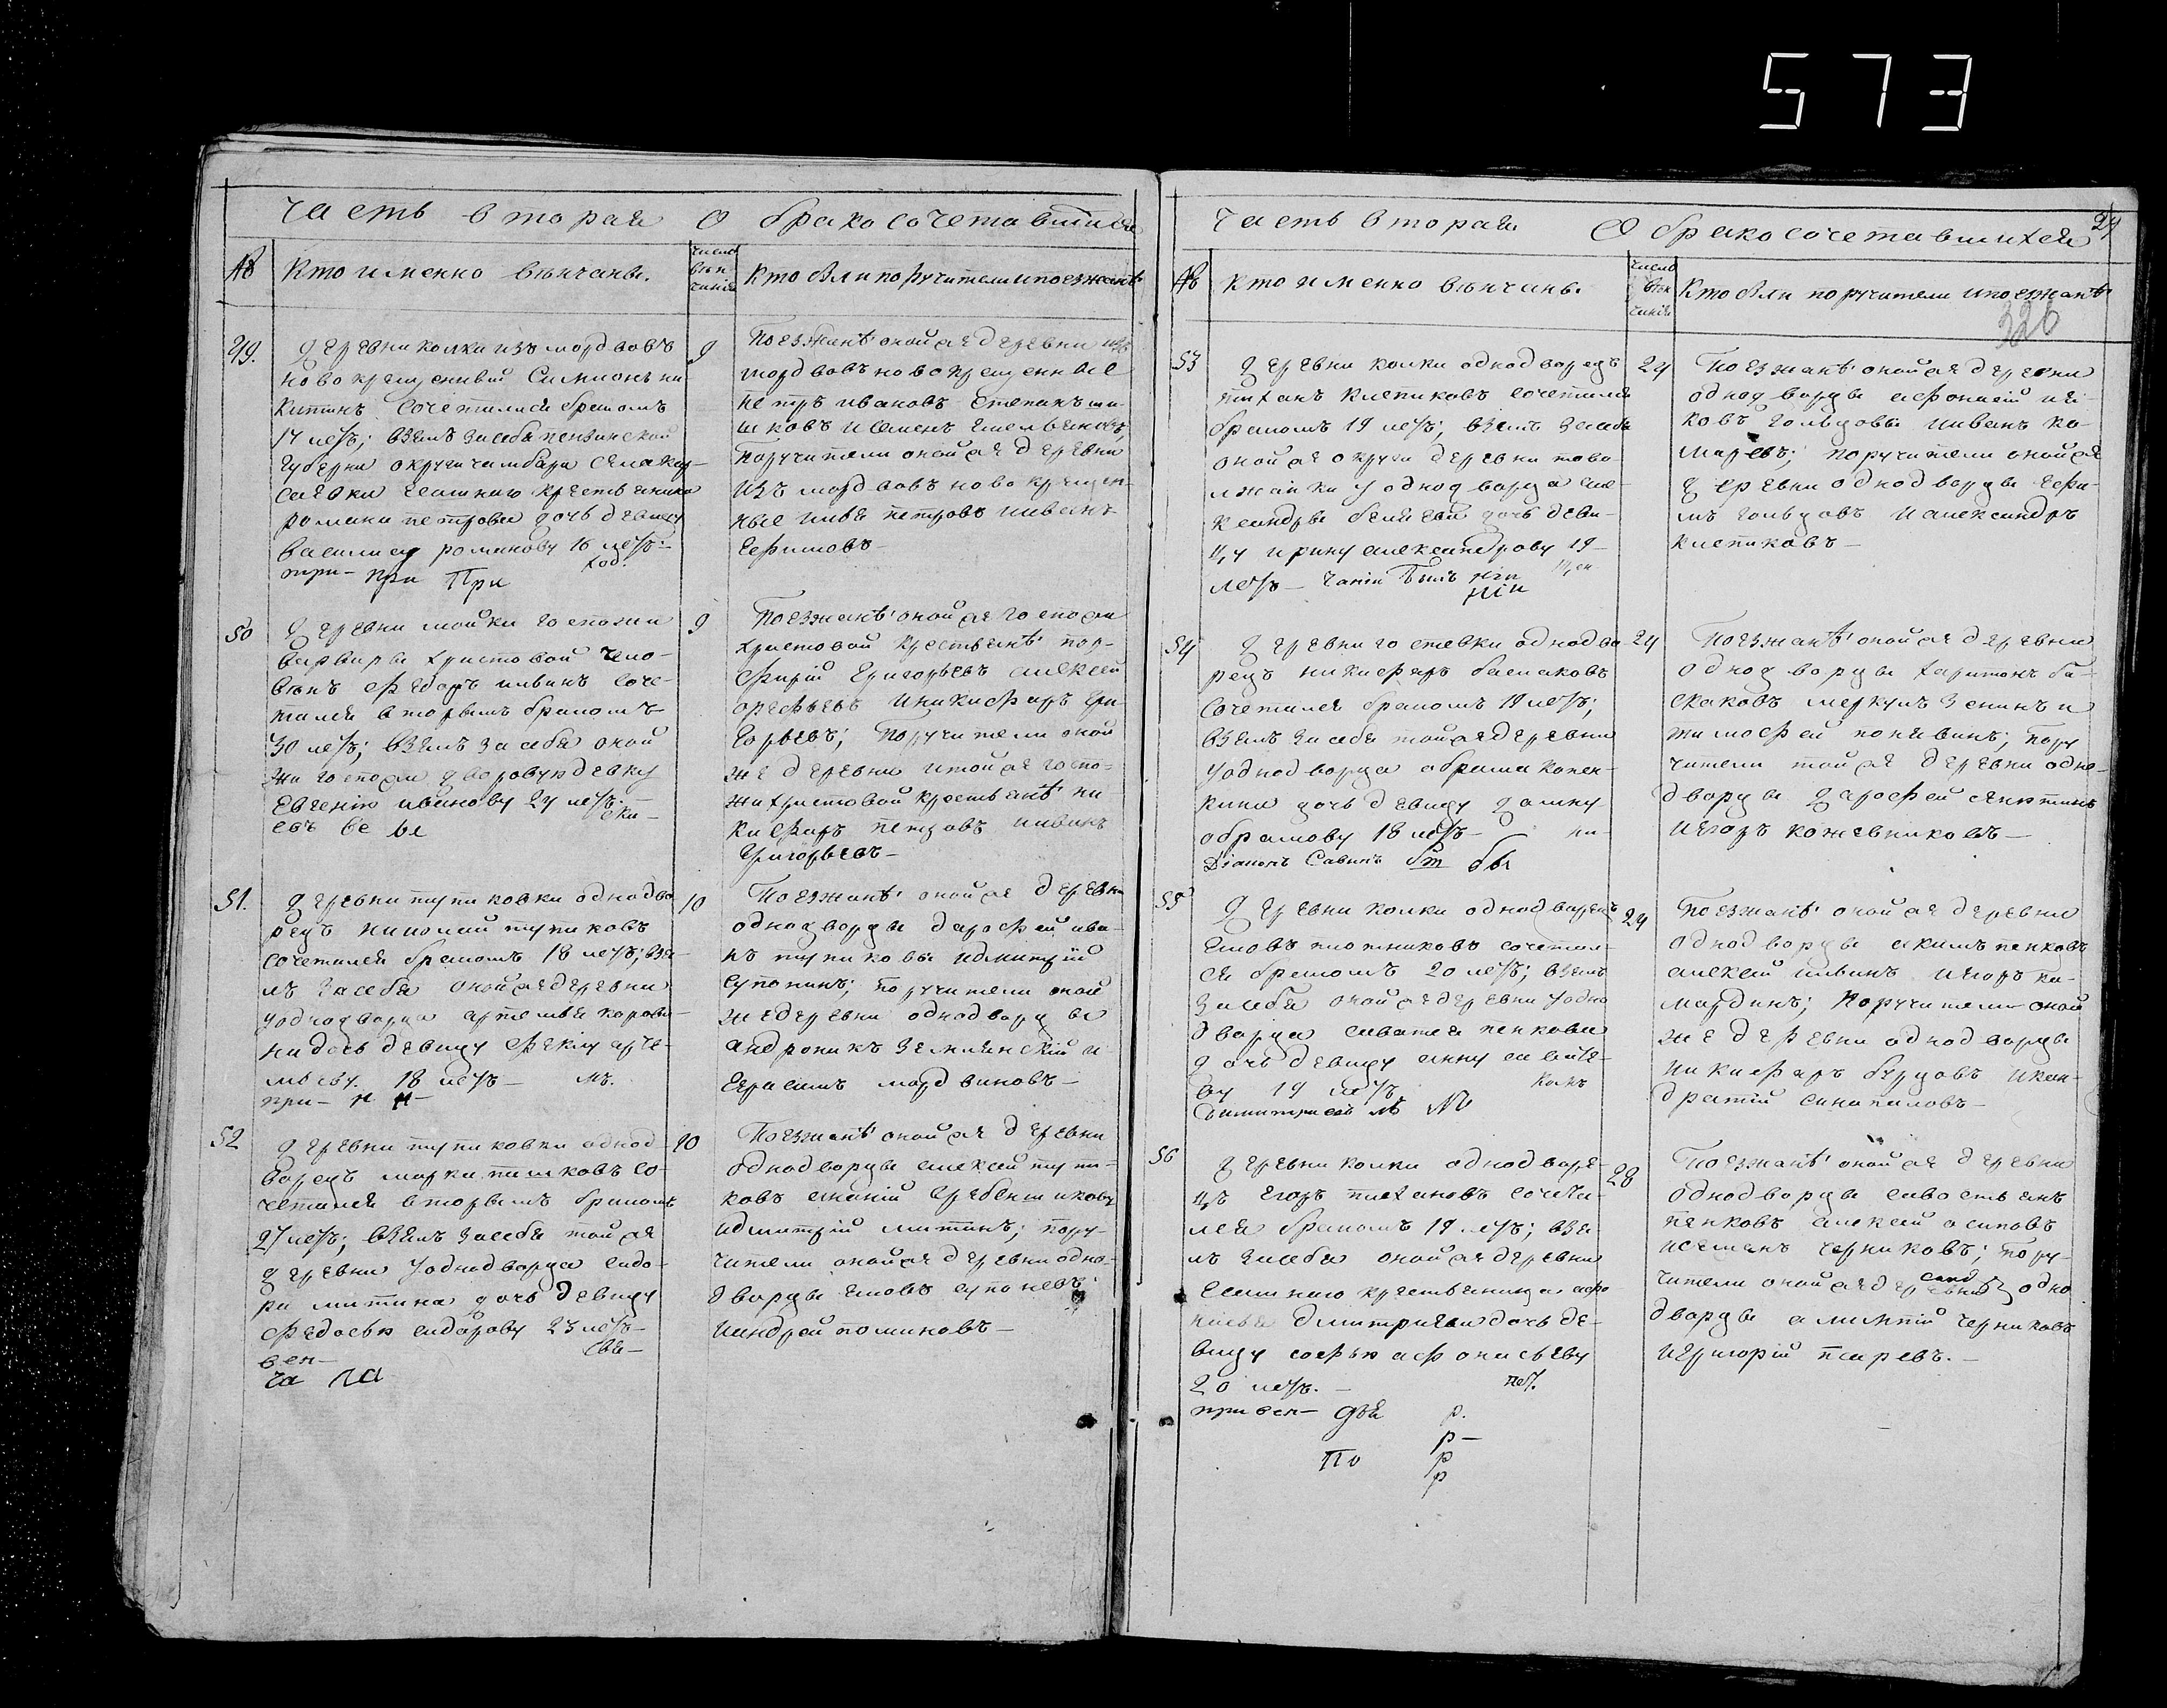 573
Часть вторая О бракосочетавшихся
№ Кто именно венчаны.
число вѣнчанія
Кто были поручители и поезжанѣ
49.
деревни колки изъ мордвовъ
новокрещеный Симионъ ни
китинъ сочетался бракомъ
17 летъ; взялъ засебя пензинской
губерни округи чембара села кар-
саевки ясашного крестьянина
романа петрова дочь девицу
василису романову 16 летъ-
при- при При
9
Поезжанѣ оной же деревни изъ
мордвовъ новокрещенные
петръ ивановъ степанъ ши-
шковъ и семенъ емельяновъ,
поручители оной же деревни
изъ мордвовъ новокрещен-
ные илья петровъ иванъ
ефимовъ-
50
деревни мойки госпожи
варвары христовой чело-
векъ федоръ ивинъ соче-
тался вторымъ бракомъ
30 летъ; взялъ за себя оной
же госпожи дворовую девку
евгенію иванову 24 летъ.-
9
Поезжанѣ оной же госпожи
христовой крестьянѣ пор-
фирій григорьевъ алексей
арефьевъ и никифаръ гри-
горьевъ; поручители оной
же деревни и той же госпо-
жи христовой крестьянѣ ни
кифаръ петровъ иванъ
григорьевъ-
51.
деревни тупиковки однодво
рецъ николай тупиковъ
сочетался бракомъ 18 летъ; взя-
лъ засебя оной же деревни
у однодворца артемья корави-
на дочь девицу феклу арте-
мьеву. 18 летъ-
при- н н-
10
Поезжанѣ оной же деревни
однодворцы дарофей ива-
нъ тупиковы и дмитрій
супонинъ; поручители оной
же деревни однодворцы
андроникъ землянскій и
герасимъ мордвиновъ-
52
деревни тупиковки однод-
ворецъ марка пашковъ со-
четался вторымъ бракомъ
27 летъ; взялъ засебя той же
деревни у однодворца сидо-
ра митина дочь девицу
федосью сидорову 23 летъ-
вен-
ча ча
10
Поезжанѣ оной же деревни
однодворцы алексей тупи-
ковъ ананій гребенщиковъ
и дмитрій митинъ; пору-
чители оной же деревни одно-
дворцы иовъ супоневъ
и андрей поминовъ-
Часть вторая О бракосочетавшихся
№ Кто именно венчаны.
число вѣнчанія
Кто были поручители и поезжанѣ
326
53
деревни колки однодворецъ
сочетался
бракомъ 19 летъ; взялъ засебя
оной же округи деревни това
лжанки у однодворца але-
ксандры беляева дочь деви-
цу ирину александрову 19
летъ-
24
Поезжанѣ оной же деревни
однодворцы афонасій ия-
ковъ гольцовы и иванъ ко-
маревъ; поручители оной же
деревни однодворцы ефи-
мъ гольцовъ и александръ
клепиковъ-
54
деревни гостевки однодво
рецъ никифаръ баскаковъ
сочетался бракомъ 19 летъ;
взялъ засебя той же деревни
у однодворца абрама копен-
кина дочь девицу домну
абрамову 18 летъ-
24
Поезжанѣ оной же деревни
однодворцы харитонъ ба-
скаковъ меркулъ зенинъ и
тимофей попивинъ; пору
чители той же деревни одно-
дворцы дарофей
и егоръ кожевниковъ-
55
деревни колки однодворецъ
иовъ плотниковъ сочетал-
ся бракомъ 20 летъ; взялъ
засебя оной же деревни у одно
дворца саватея пенкова
дочь девицу анну савате-
ву 19 летъ
24
Поезжанѣ оной же деревни
однодворцы акимъ пенковъ
алексей ивинъ и егоръ ка-
мардинъ; поручители оной
же деревни однодворцы
никифаръ бурцовъ и кон-
дратій синапаловъ-
56
деревни колки однодворе-
цъ егоръ плехановъ сочета-
лся бракомъ 19 летъ; взя-
лъ засебя оной же деревни
ясашного крестьянина афо
насья дмитриева дочь де-
вицу софью афонасьеву
20 летъ.-
28
Поезжанѣ оной же деревни
однодворцы савостьянъ
пенковъ алексей осиповъ
и семенъ черниковъ; пору-
чители оной же деревни одно
дворцы алимпій черниковъ
и григорій псаревъ.-